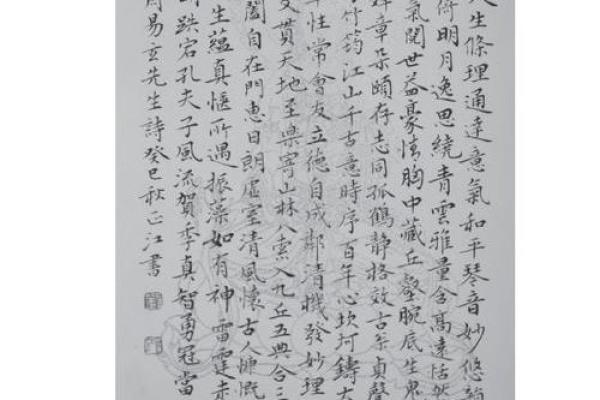 人生條理通達意氣和平琴音妙悠韻
倚明月逸思繞青雲雅量含高遠恬然
氣閑世益豪情胸中藏丘壑腕底生鬼
奎章朵頤存志同孤鶴静格效古弟貞聲
竹筠江山千古意時序百年心坎坷鑄大
率性常會友立德自成鄰清機發妙理
文貫天地至樂寄山林八索入九丘五典合三
闔自在門惠日朗虚室清風懷古人慷慨
生蘊真愜所遇振藻如有神雷霆走
跌宕孔夫子風流賀季真智勇冠當
周易玄先生詩癸巳秋正江書